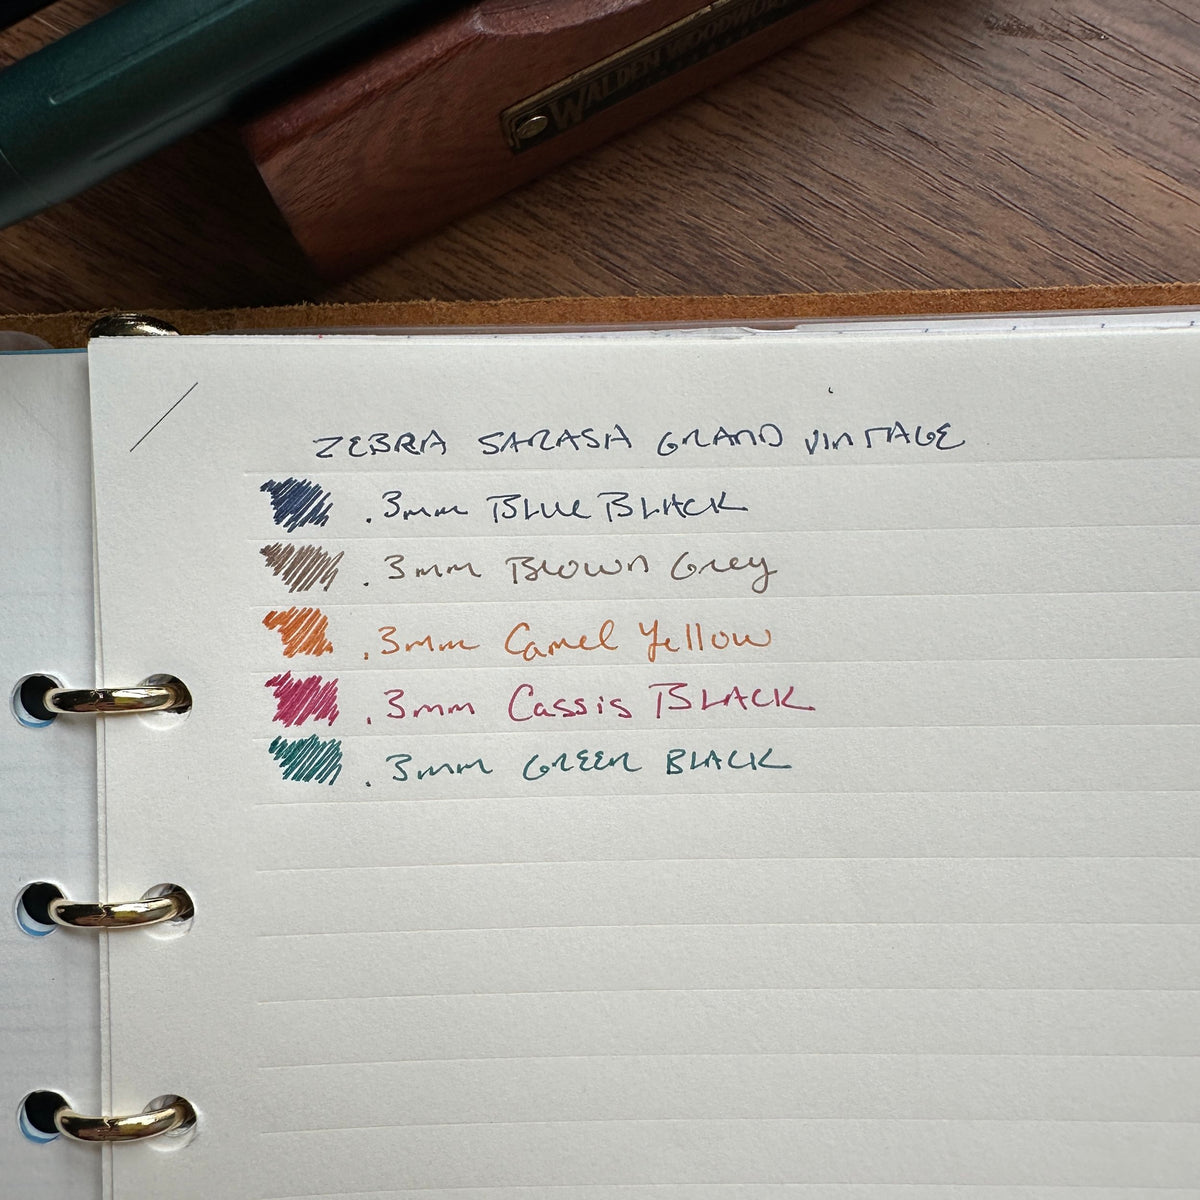 WALDEN WOODWOR
ZEBRA SARASA GRAND VINTAGE
.3mm Blue BLACK
.3mm Brown Grey
.3mm Camel Yellow
.3mm Cassis BLACK
.3mm GREEN BLACK